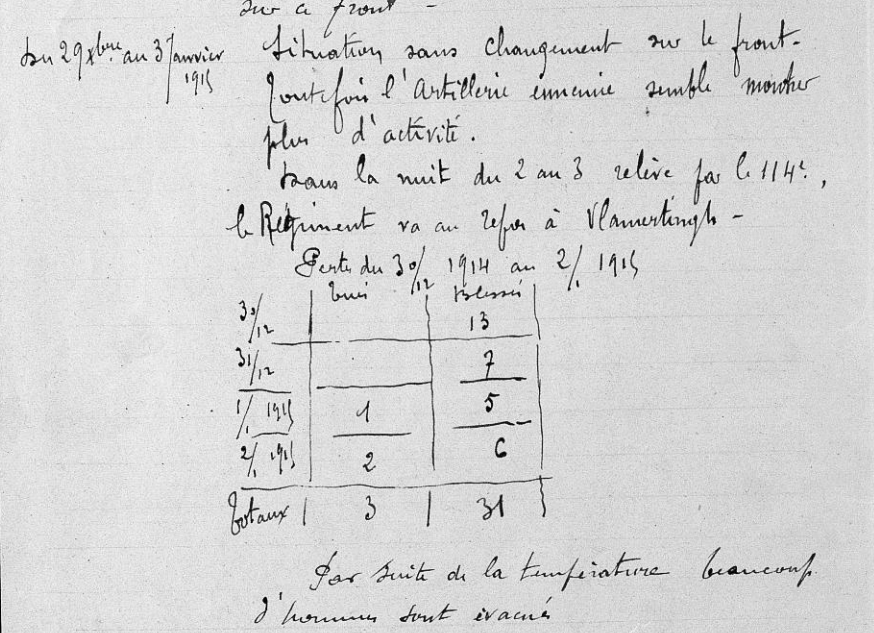 sur ce front -
Du 29 xbre au 3 Janvier 1915
Situation sans changement sur le front.
Toutefois l'artillerie ennemie semble montrer
plus d'activité.
Dans la nuit du 2 au 3 relève par le 114e,
le Régiment va au repos à Vlamertingh -
Pertes du 30/12 1914 au 2/1 1915
tués Blessés
30/12 13
31/12 7
1/1 1915 1 5
2/1 1915 2 6
Totaux 3 31
Par suite de la température beaucoup
d'hommes sont évacués